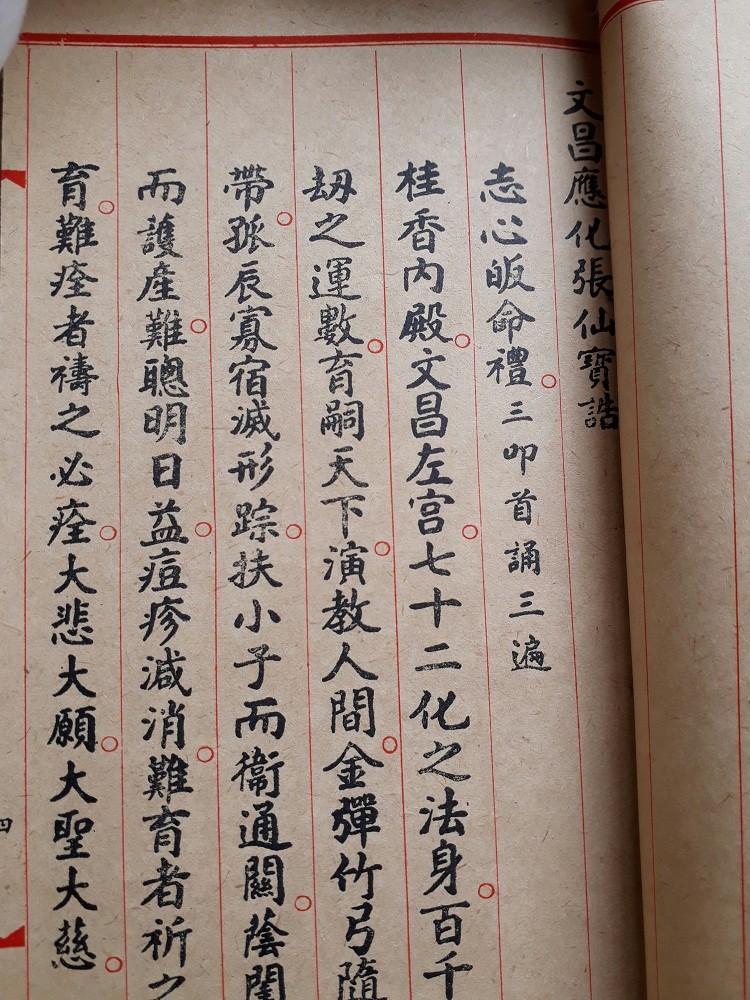 文昌應化張仙寶誥
志心皈命禮。三叩首誦三遍
桂香內殿。文昌左宮。七十二化之法身。百千
劫之運數。育嗣天下。演教人間。金彈竹弓隨
帶。孤辰寡宿滅形踪。扶小子而衞通關。蔭閨
而護產難。聰明日益。痘疹減消。難育者祈之
育。難痊者禱之必痊。大悲大願。大聖大慈。
四